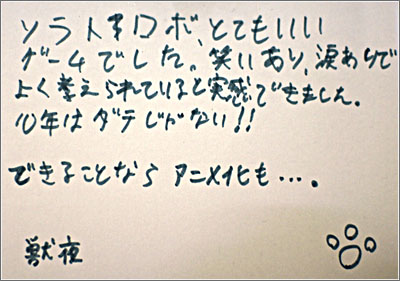 ソラトロボ、とてもいいい
ゲームでした。笑いあり、涙ありで
よく考えられていると実感できました。
10年はダテじゃない!!
できることなら アニメ化も…。
獣夜